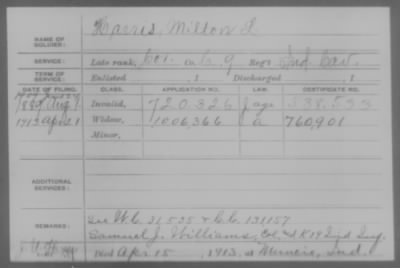 NAME OF SOLDIER: Harris, Milton
SERVICE: Late rank, Co. 9 Reg't Ind. Cav.
TERM OF SERVICE: Enlisted , 1 Discharged , 1
DATE OF FILING. CLASS. APPLICATION NO. LAW. CERTIFICATE NO.
Aug Invalid, 720,326 538.593
1913 April Widow, 1006,366 a 760,901
Minor,
ADDITIONAL SERVICES:
REMARKS: See W.C. 31,535 & C.C. 131157
Samuel J. Williams, Co. K 19 Ind Inf.
Died Apr 15, 1913, at Muncie, Ind.